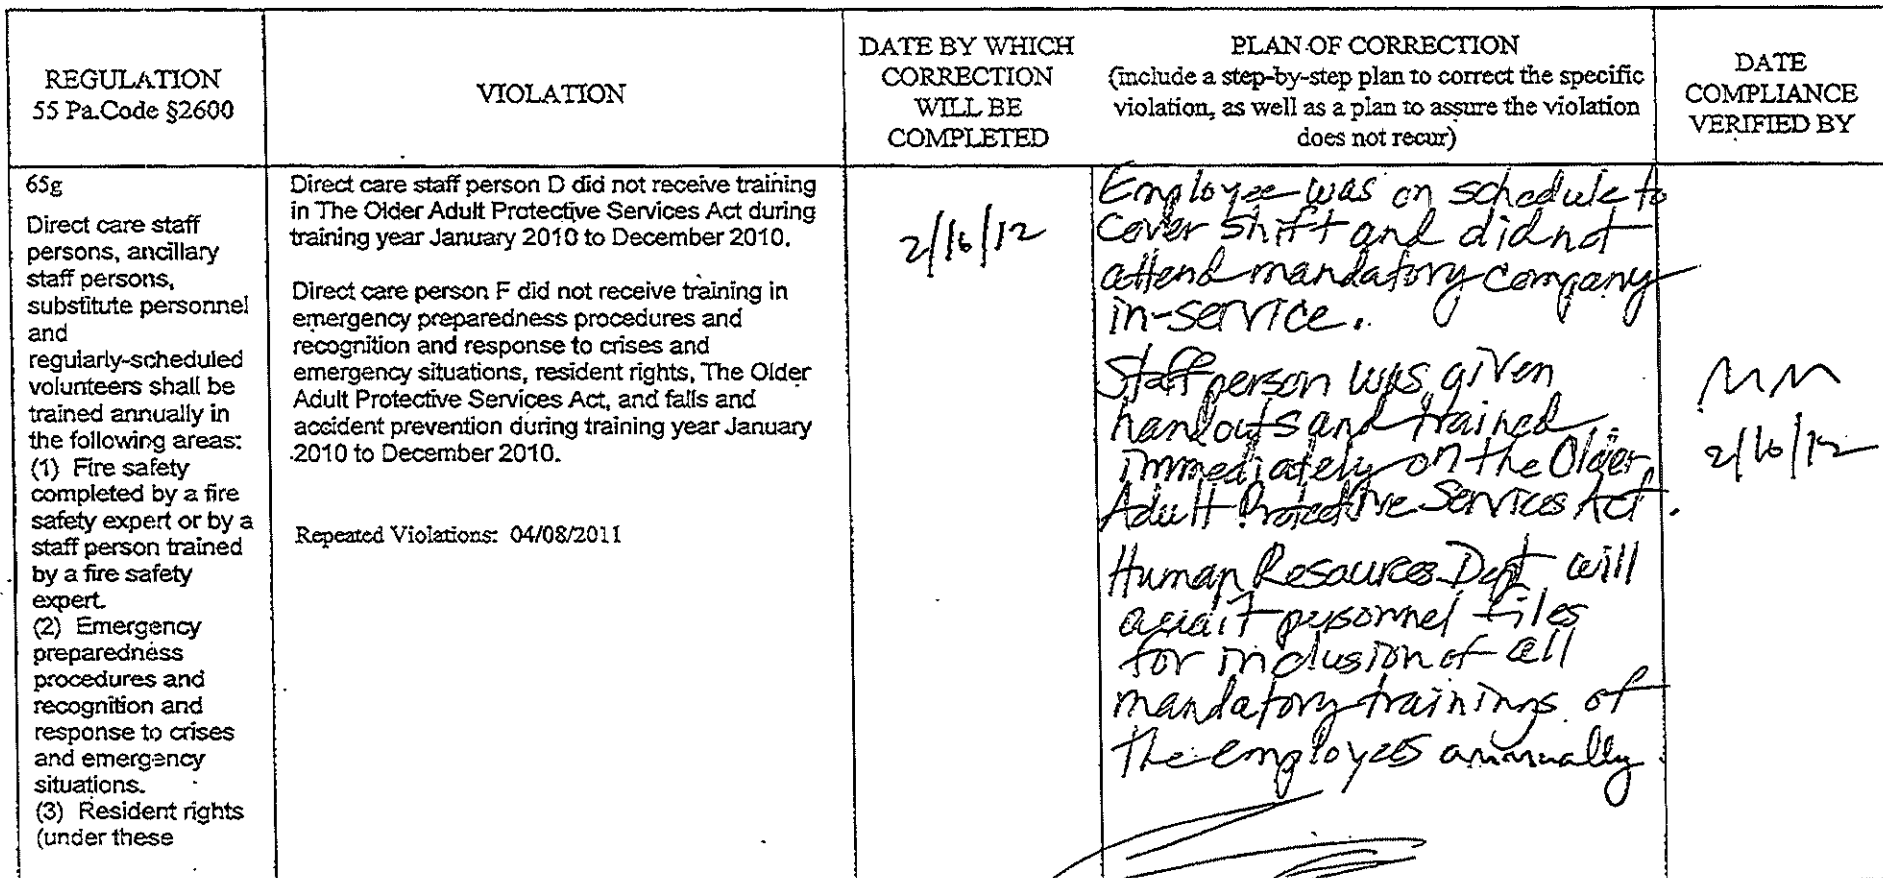 REGULATION
55 Pa.Code §2600
VIOLATION
DATE BY WHICH
CORRECTION
WILL BE
COMPLETED
PLAN OF CORRECTION
(include a step-by-step plan to correct the specific
violation, as well as a plan to assure the violation
does not recur)
DATE
COMPLIANCE
VERIFIED BY
65g
Direct care staff
persons, ancillary
staff persons,
substitute personnel
and
regularly-scheduled
volunteers shall be
trained annually in
the following areas:
(1) Fire safety
completed by a fire
safety expert or by a
staff person trained
by a fire safety
expert.
(2) Emergency
preparedness
procedures and
recognition and
response to crises
and emergency
situations.
(3) Resident rights
(under these
Direct care staff person D did not receive training
in The Older Adult Protective Services Act during
training year January 2010 to December 2010.
Direct care person F did not receive training in
emergency preparedness procedures and
recognition and response to crises and
emergency situations, resident rights, The Older
Adult Protective Services Act, and falls and
accident prevention during training year January
2010 to December 2010.
Repeated Violations: 04/08/2011
2/16/12
Employee was on schedule to
cover shift and did not
attend mandatory company
in-service.
Staff person was given
handouts and trained
immediately on the Older
Adult Protective Services Act.
Human Resources Dept will
audit personnel files
for inclusion of all
mandatory trainings of
the employees annually
2/16/12